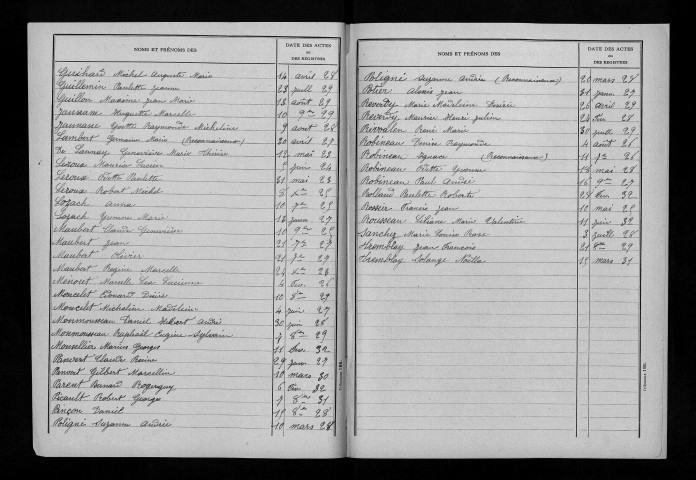 NOMS ET PRÉNOMS DES
DATE DES ACTES
OU
DES REGISTRES
Guichard Michel Auguste Marie 14 avril 28
Guillemin Paulette Jeanne 23 juill 29
Guillon Maxime Jean Marie 18 août 29
Jaussaume Huguette Marcelle 10 9bre 29
Jaunasse Ginette Raymonde Micheline 9 août 28
Lambert Germaine Marie (Reconnaissance) 30 avril 27
De Lannay Geneviève Marie Thérèse 12 mai 23
Leroux Maurice Lucien juin 24
Leroux Odette Paulette 31 mai 23
Leroux Robert Michel 8 25
Lozach Anna 10 25
Lozach Yvonne Marie 18 janv 27
Maubert Claude Geneviève 10 9bre 25
Maubert Jean 21 27
Maubert Olivier 21 29
Maubert Régine Marcelle 24 26
Menout Marcelle Léa Lucienne 4 fév. 26
Moncelet Edouard Désiré 10 8bre 27
Moncelet Micheline Madeleine 4 juin 27
Monmousseau Daniel Hubert André 30 juin 26
Monmousseau Raphaël Eugène Sylvain 7 8bre 29
Monsellier Marius Georges 11 32
Panvert Claude Renée 29 janv 27
Panvert Gilbert Marcellin 10 mars 30
Parent Bernard Roger Guy 6 fév 32
Picault Robert Georges 7 8bre 31
Pinçon Daniel 19 8bre 28
Poligné Suzanne Andrée 10 mars 28
NOMS ET PRÉNOMS DES
DATE DES ACTES
OU
DES REGISTRES
Poligné Suzanne Andrée (Reconnaissance) 20 mars 28
Potier Alexis Jean 31 janv 27
Reverdy Marie Madeleine Désirée 26 avril 29
Reverdy Maurice Henri Julien 24 fév 28
Rivoalen René Marie 30 juill 29
Robineau Denise Raymonde 4 août 26
Robineau Ignace (Reconnaissance) 11 26
Robineau Odette Yvonne 18 mai 28
Robineau Paul André 16 9bre 27
Rolland Paulette Roberte 25 fév 32
Rossier Francis Jean 10 mai 25
Rousseau Liliane Marie Valentine 11 juin 32
Sanchez Marie Louise Rose 3 juill 28
Tremblay Jean François 21 8bre 29
Tremblay Solange Noëlla 15 mars 31